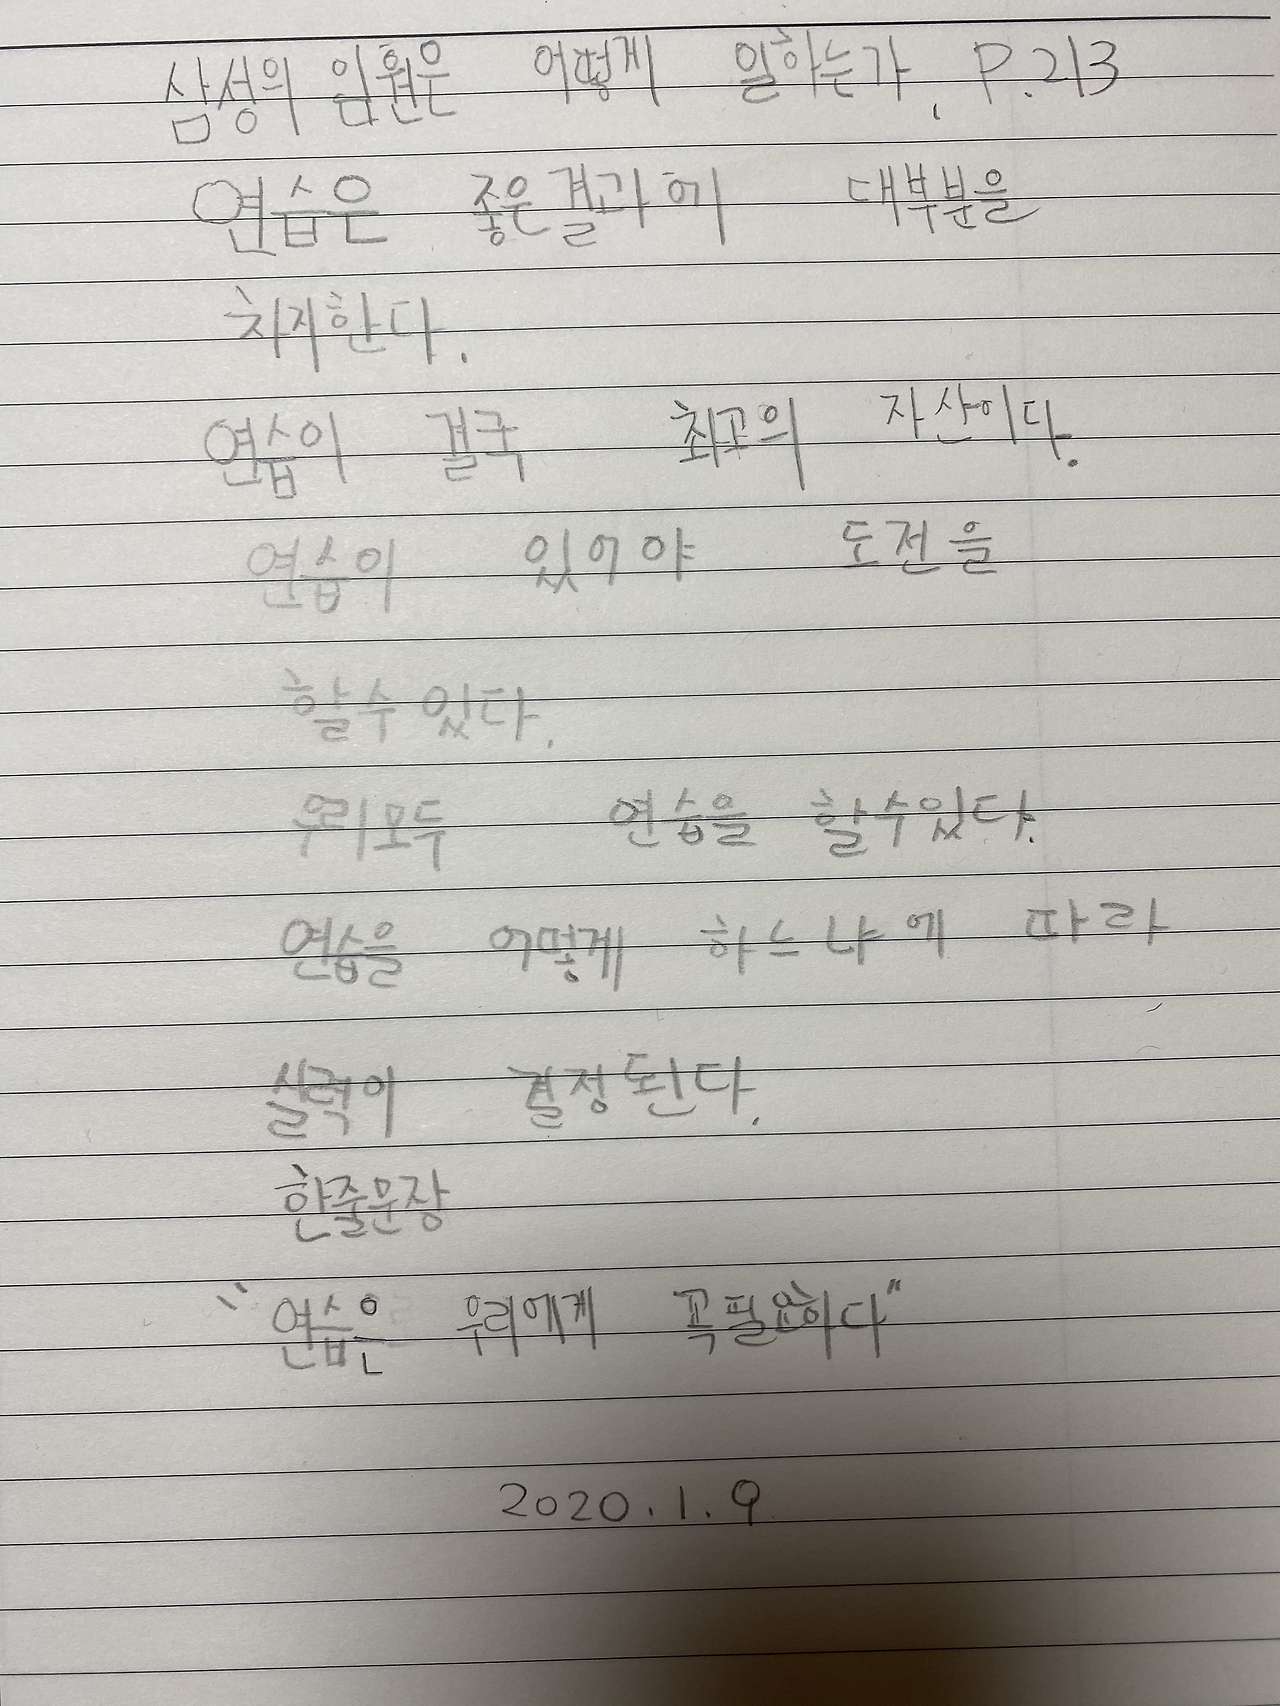 삼성의 임원은 어떻게 일하는가, P.213
연습은 좋은결과에 대부분을
차지한다.
연습이 결국 최고의 자산이다.
연습이 있어야 도전을
할수있다.
우리모두 연습을 할수있다.
연습을 어떻게 하느냐에 따라
실력이 결정된다.
한줄문장
"연습은 우리에게 꼭필요하다"
2020.1.9